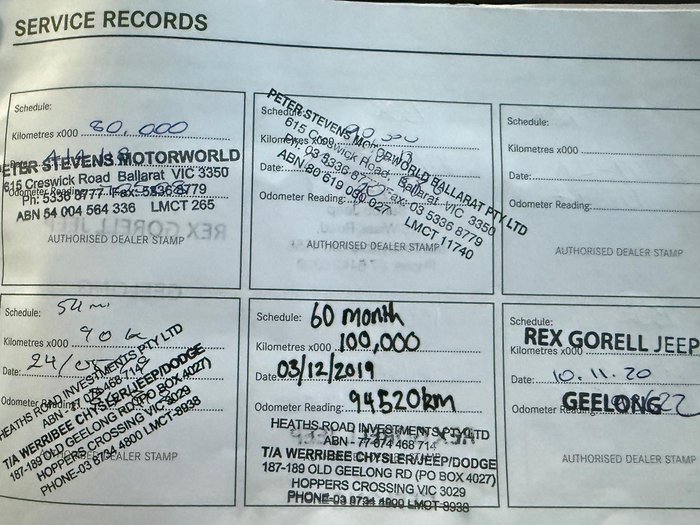 SERVICE RECORDS
Schedule:
Kilometres x000 80,000
Date:
PETER STEVENS MOTORWORLD
615 Creswick Road Ballarat VIC 3350
Ph: 5336 8777 Fax: 5336 8779
Odometer Reading:
ABN 54 004 564 336 LMCT 265
AUTHORISED DEALER STAMP
Schedule:
Kilometres x000
Date:
Odometer Reading:
PETER STEVENS MOTORWORLD BALLARAT PTY LTD
615 Creswick Road, Ballarat VIC 3350
Ph: 03 5336 8777 Fax: 03 5336 8779
ABN 60 619 080 027 LMCT 11740
AUTHORISED DEALER STAMP
Schedule:
Kilometres x000
Date:
Odometer Reading:
AUTHORISED DEALER STAMP
Schedule: 54 m
Kilometres x000 90 k
Date: 24/05
Odometer
HEATHS ROAD INVESTMENTS PTY LTD
ABN - 77 074 468 714
T/A WERRIBEE CHYSLER/JEEP/DODGE
187-189 OLD GEELONG RD (PO BOX 4027)
HOPPERS CROSSING VIC 3029
PHONE-03 8734 4800 LMCT-8938
DEALER STAMP
Schedule: 60 month
Kilometres x000 100,000
Date: 03/12/2019
Odometer Reading: 94520km
HEATHS ROAD INVESTMENTS PTY LTD
ABN - 77 074 468 714
T/A WERRIBEE CHYSLER/JEEP/DODGE
187-189 OLD GEELONG RD (PO BOX 4027)
HOPPERS CROSSING VIC 3029
PHONE-03 8734 4800 LMCT-8938
Schedule:
REX GORELL JEEP
Kilometres x000
Date: 10.11.20
GEELONG
Odometer Reading:
AUTHORISED DEALER STAMP